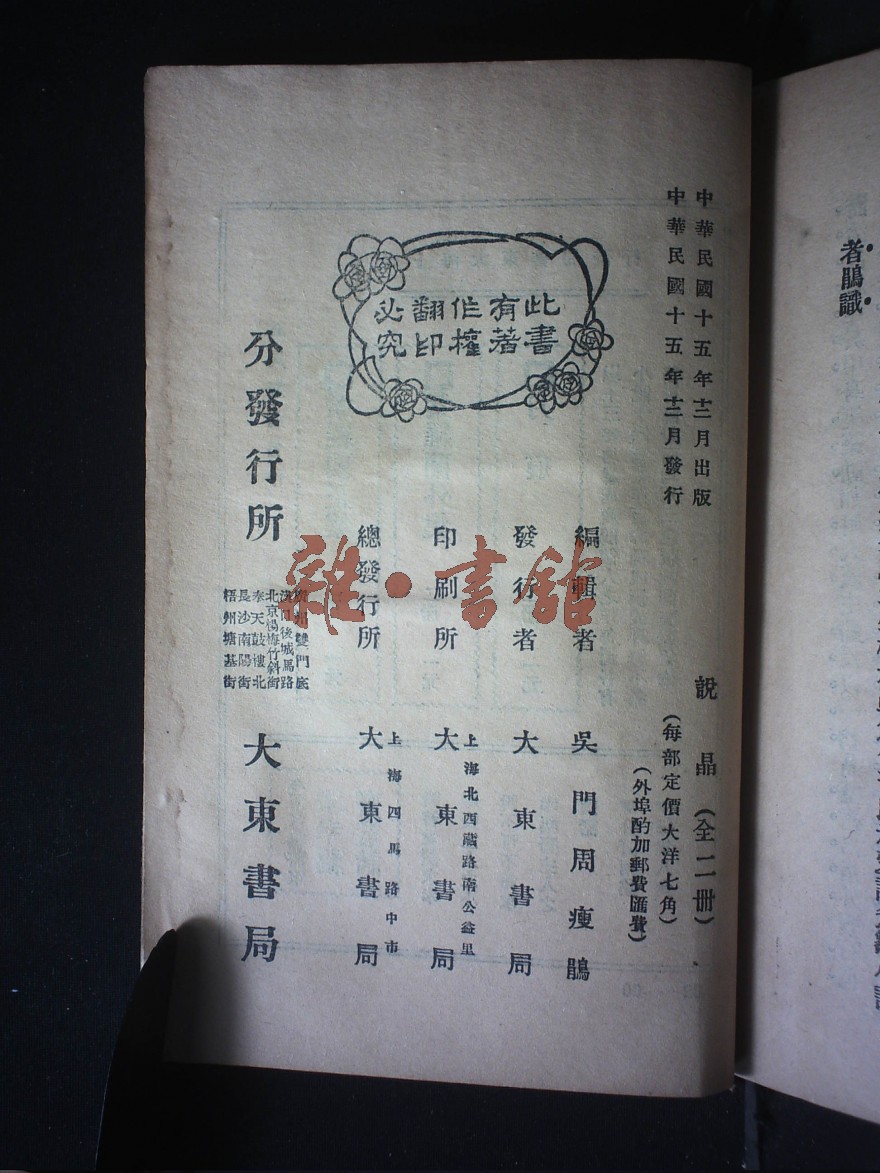 者鵑識
中華民國十五年十二月出版
中華民國十五年十二月發行
此書
有著
作權
翻印
必究
說晶（全二冊）
（每部定價大洋七角）
（外埠酌加郵費匯費）
編輯者 吳門周瘦鵑
發行者 大東書局
印刷所 上海北西藏路南公益里 大東書局
總發行所 上海四馬路中市 大東書局
分發行所
廣州雙門底
漢口後城馬路
北京楊梅竹斜街
奉天鼓樓北
長沙南陽街
梧州塘基街
大東書局
雜·書館